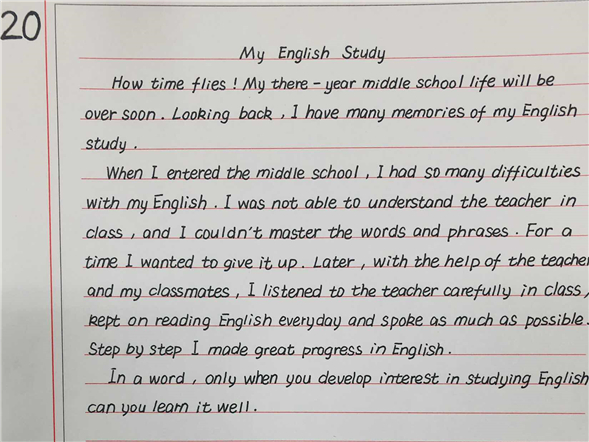 20
My English Study
How time flies ! My there - year middle school life will be
over soon . Looking back , I have many memories of my English
study .
When I entered the middle school , I had so many difficulties
with my English . I was not able to understand the teacher in
class , and I couldn't master the words and phrases . For a
time I wanted to give it up . Later , with the help of the teacher
and my classmates , I listened to the teacher carefully in class ,
kept on reading English everyday and spoke as much as possible .
Step by step I made great progress in English .
In a word , only when you develop interest in studying English
can you learn it well .